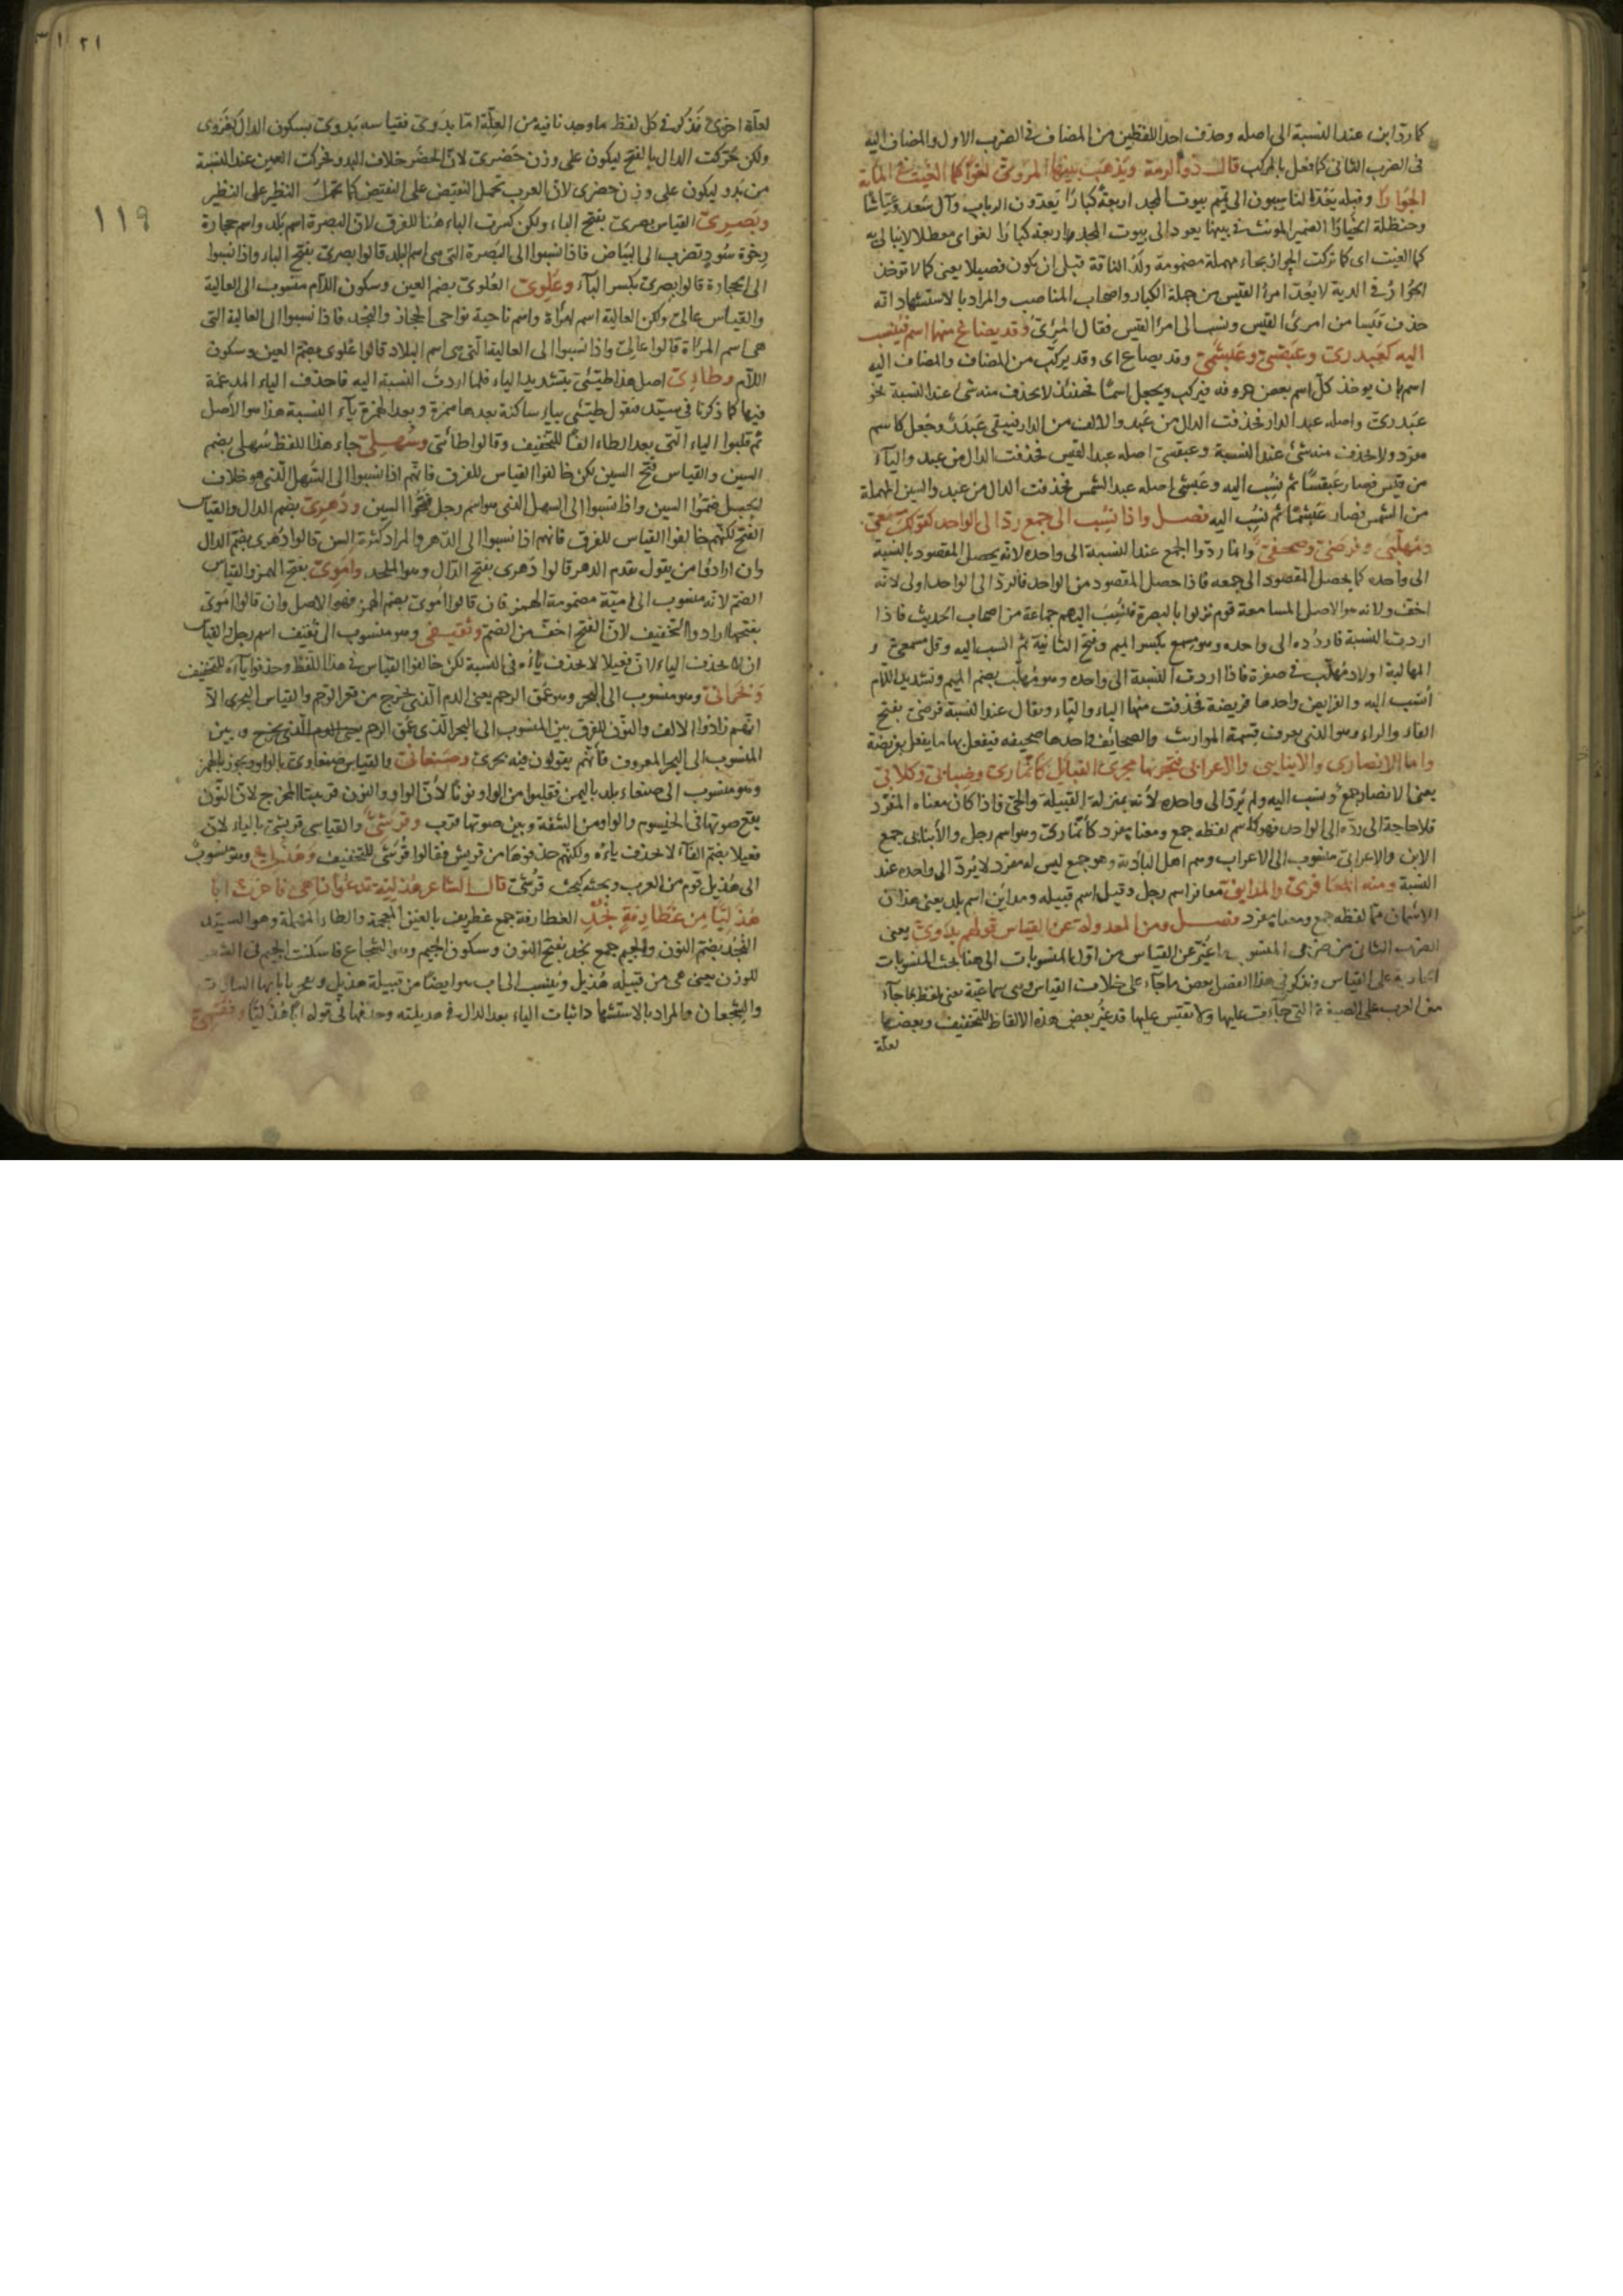 كما ردّ ابن عند النسبة الى اصله وحذف احد اللفظين من المضاف في الضرب الاول والمضاف اليه
في الضرب الثاني كما فعل بالمركب قال ذو الرمة ويذهب بينها المرئي لغوا كما الغيت في الماية
الحوارا وقبله يعدّ الناسبون الى تميم بيوت المجد اربعة كبارا يعدّون الرباب وآل سعد
وحنظلة الخيارا الضمير المؤنث في بينها يعود الى بيوت المجد واربعة كبارا لغوا اى معطلا لا يبالى به
كما الغيت اى كما تركت الحوار بحاء مهملة مضمومة ولد الناقة قبل ان يكون فصيلا يعنى كما لا تؤخذ
الحوار في الدية لا يعدّ امرء القيس من جملة الكبار واصحاب المناصب والمراد بالاستشهاد انه
حذف قيسا من امرئ القيس ونسب الى امرأ القيس فقال المرئىّ وقد يصاغ منهما اسم فينسب
اليه كعبدرىّ وعبقسىّ وعبشمىّ وقد يصاغ اى وقد يركّب من المضاف والمضاف اليه
اسم بان يوخذ كلّ اسم بعض حروفه فيركب ويجعل اسما فحينئذ لا يحذف منه شئ عند النسبة نحو
عبدرىّ واصله عبد الدار فحذفت الدال من عبد والالف من الدار فبقى عبدر وجعل كاسم
مفرد ولا يحذف منه شئ عند النسبة وعبقسىّ اصله عبد القيس فحذفت الدال من عبد والياء
من قيس فصار عبقسا ثم نسب اليه وعبشمى اصله عبد الشمس فحذفت الدال من عبد والسين المهملة
من الشمس فصار عبشما ثم نسب اليه فصل واذا نسب الى جمع ردّ الى الواحد كقولك مسمعىّ
ومهلّبىّ وفرضىّ وصحفىّ وانما ردّوا الجمع عند النسبة الى واحده لانه يحصل المقصود بالنسبة
الى واحده كما يحصل المقصود الى جمعه فاذا حصل المقصود من الواحد فالردّ الى الواحد اولى لانه
اخف ولانه هو الاصل المسامعة قوم نزلوا بالبصرة فنسب اليهم جماعة من اصحاب الحديث فاذا
اردت النسبة فاردده الى واحده وهو مسمع بكسر الميم وفتح الثانية ثم انسب اليه وقل مسمعىّ و
المهالبة اولاد مهلّب في صفرة فاذا اردت النسبة الى واحده وهو مهلّب بضم الميم وتشديد اللام
انسب اليه والفرايض واحدها فريضة فحذفت منها الياء والتاء ويقال عند النسبة فرضىّ بفتح
الفاء والراء وهو الذى يعرف قسمة المواريث والصحائف واحدها صحيفه فيفعل بها ما يفعل بفريضة
واما الانصارى والانبارى والاعرابى فتجريها مجرى القبائل كانمارىّ وضبابىّ وكلابىّ
يعنى الانصار جمع ونسب اليه ولم يردّ الى واحده لانه بمنزلة القبيلة والحىّ فاذا كان معناه المفرد
فلا حاجة الى ردّه الى الواحد فهو كاسم لفظه جمع ومعناه مفرد كانمارىّ وهو اسم رجل والأبناء جمع
الابن والاعرابىّ منسوب الى الاعراب وهم اهل البادية وهو جمع ليس له مفرد لا يردّ الى واحده عند
النسبة ومنه المعافرىّ والمداينىّ معافر اسم رجل وقيل اسم قبيله ومداين اسم بلد يعنى هذان
الاسمان مما لفظه جمع ومعناه مفرد فصل ومن المعدولة عن القياس قولهم بدوىّ يعنى
الضرب الثانى من ضربى المنسوب ما غيّر عن القياس من اوّل المنسوبات الى هنا بحث المنسوبات
الجارية على القياس ونذكر في هذا الفصل بعض ما جآء على خلاف القياس وهى سماعية يعنى يلفظ بما جآء
من العرب على الصيغة التى جآءت عليها ولا نقيس عليها قد غيّر بعض هذه الالفاظ للتخفيف وبعضها
لعلّة
١٢١
١١٩
لعلّة اخرى نذكر في كل لفظ ما وجدنا فيه من العلّة امّا بدوىّ فقياسه بدوىّ بسكون الدال كغزوى
ولكن حرّكت الدال بالفتح ليكون على وزن حضرىّ لانّ الحضر خلاف البدو فحركت العين عند النسبة
من بدو ليكون على وزن حضرى لان العرب تحمل النقيض على النقيض كما تحمل النظير على النظير
وبصرىّ القياس بصرىّ بفتح الباء ولكن كسرت الباء هنا للفرق لان البصرة اسم بلد واسم حجارة
رخوة سود تضرب الى البياض فاذا نسبوا الى البصرة التى هى اسم البلد قالوا بصرىّ بفتح الباء واذا نسبوا
الى الحجارة قالوا بصرىّ بكسر البآء وعلوىّ العلوىّ بضم العين وسكون اللام منسوب الى العالية
والقياس عالىّ ولكن العالية اسم امرأة واسم ناحية نواحى الحجاز والنجد فاذا نسبوا الى العالية التى
هى اسم المرأة قالوا عالىّ واذا نسبوا الى العالية التى هى اسم البلاد قالوا علوى بضم العين وسكون
اللام وطائىّ اصل هذا طيّئىّ بتشديد الياء فلما اردت النسبة اليه فاحذف الياء المدغمة
فيها كما ذكرنا في سيّد فتقول طيئىّ بياء ساكنة بعدها همزة وبعد الهمزة ياء النسبة هذا هو الأصل
ثم قلبوا الياء التى بعد الطاء الفا للتخفيف وقالوا طائى وسهلىّ جاء هذا اللفظ سهلى بضم
السين والقياس فتح السين لكن خالفوا القياس للفرق فانّهم اذا نسبوا الى السهل الذى هو خلاف
الجبل ضمّوا السين واذا نسبوا الى السهل الذى هو اسم رجل فتحوا السين ودهرىّ بضم الدال والقياس
الفتح لكنّهم خالفوا القياس للفرق فانهم اذا نسبوا الى الدهر والمراد كثرة السن قالوا دهرى بضم الدال
وان ارادوا من يقول بقدم الدهر قالوا دهرى بفتح الدال وهو الملحد وامويّ بفتح الهمز والقياس
الضم لانه منسوب الى اميّة مضمومة الهمز فان قالوا امويّ بضم الهمز فهو الاصل وان قالوا امويّ
بفتحها ارادوا التخفيف لانّ الفتح اخف من الضم وثقيفى وهو منسوب الى ثقيف اسم رجل والقياس
ان لا يحذف الياء لان فعيلا لا يحذف ياؤه في النسبة لكن خالفوا القياس في هذا اللفظ وحذفوا ياءه للتخفيف
وبحرانىّ وهو منسوب الى البحر وهو عمق الرحم يعنى الدم الذى يخرج من قعر الرحم والقياس البحرى الا
انّهم زادوا الالف والنون للفرق بين المنسوب الى البحر الذى عمق الرحم يعنى الدم الذى يخرج وبين
المنسوب الى البحر المعروف فانّهم يقولون فيه بحرىّ وصنعانىّ والقياس صنعاوىّ بالواو ويجوز بالهمز
وهو منسوب الى صنعاء بلد باليمن فقلبوا من الواو نونا لأنّ الواو والنون قريبتا المخرج لان النون
يقع صوتها في الخيشوم والواو من الشفة وبين صوتهما قرب وقرشىّ والقياس قريشىّ بالياء لان
فعيلا بضم الفآء لا يحذف ياءه ولكنّهم حذفوها من قريش فقالوا قرشى للتخفيف وهذلىّ وهو منسوب
الى هذيل قوم من العرب وبحثه كبحث قرشىّ قال الشاعر هذيليّة تدعوا اذا هى فاخرت ابا
هذليّا من غطارفة نجد الغطارفة جمع غطريف بالغين المعجمة والطاء المهملة وهو السيّد
النجد بضم النون والجيم جمع نجد بفتح النون وسكون الجيم وهو الشجاع فاسكنت الجيم في الشعر
للوزن يعنى هى من قبيله هذيل وينسب الى اب هو ايضا من قبيلة هذيل
والشجعان والمراد بالاستشهاد اثبات الياء بعد الدال في هذيليّة وحذفها في قوله ابا هذليّا وفقمىّ